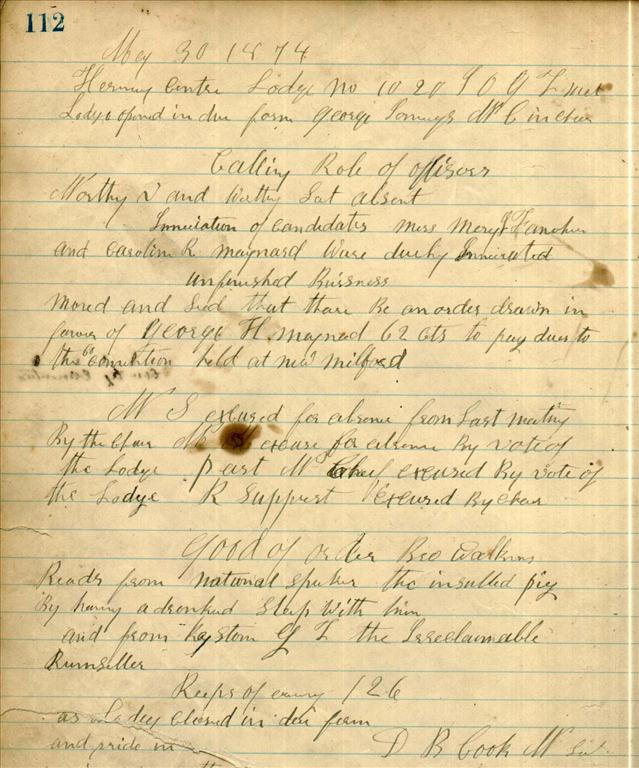 112
May 30 1874
Centre Lodge No 1020 I O G T met
Lodge opened in due form George W C in chair
Calling Role of officers
Worthy V and Worthy Sect absent
of candidates Miss Mary
and Caroline R. Maynard Ware
unfinished Bussness
Moved and Secd that thare Be an order drawn in
of George H. 62 cts to pay dues to
the Co convention held at new milford
W S excused for absence from Last meeting
By the chair excuse for absence By vote of
the Lodge Past W excused By vote of
the Lodge R Support excused By chair
Good of order Bro Watkins
Reads from national the insulted pig
By having a Sleep With him
and from G T the Irreclaimable
Rumseller
of 126
as Lodge Closed in due form
and pride in
D B Cook W
the